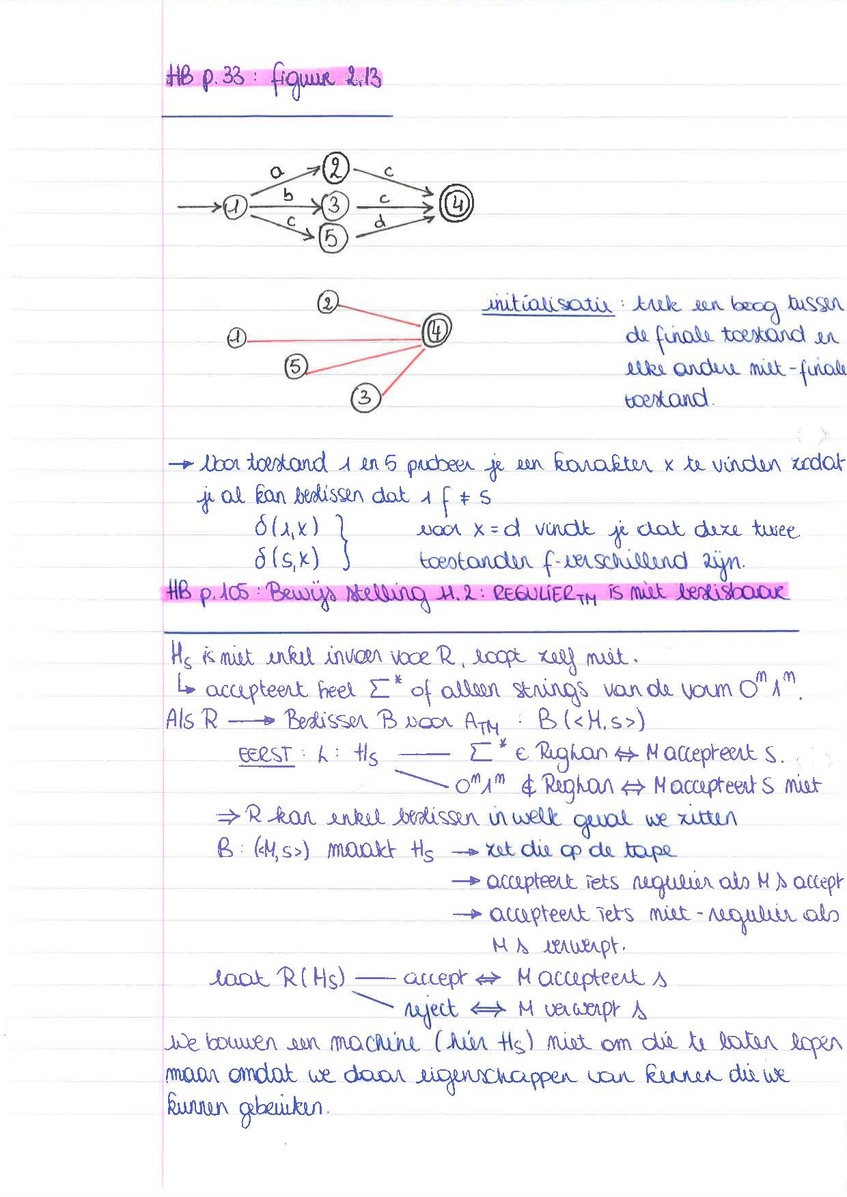 HB p.33 : figuur 2.13
a 2 c
1 b 3 c 4
c 5 d
2
initialisatie : trek een boog tussen
1 4 de finale toestand en
5 elke andere niet-finale
3 toestand.
→ Voor toestand 1 en 5 probeer je een karakter x te vinden zodat
je al kan beslissen dat 1 f ≠ 5
δ(1,x) } voor x=d vindt je dat deze twee
δ(5,x) toestanden f-verschillend zijn.
HB p.105 : Bewijs stelling 11.2 : REGULIER_TM is niet beslisbaar
H_s is niet enkel invoer voor R, loopt zelf niet.
↳ accepteert heel Σ* of alleen strings van de vorm 0^m1^m.
Als R → Beslisser B voor A_TM : B(<M,s>)
EERST : L : H_s — Σ* ∈ Reglan ⇔ M accepteert s.
0^m1^m ∉ Reglan ⇔ M accepteert s niet
⇒ R kan enkel beslissen in welk geval we zitten
B : (<M,s>) maakt H_s → zet die op de tape
→ accepteert iets regulier als M s accept
→ accepteert iets niet-regulier als
M s verwerpt.
laat R(H_s) — accept ⇔ M accepteert s
reject ⇔ M verwerpt s
We bouwen een machine (hier H_s) niet om die te laten lopen
maar omdat we daar eigenschappen van kennen die we
kunnen gebruiken.